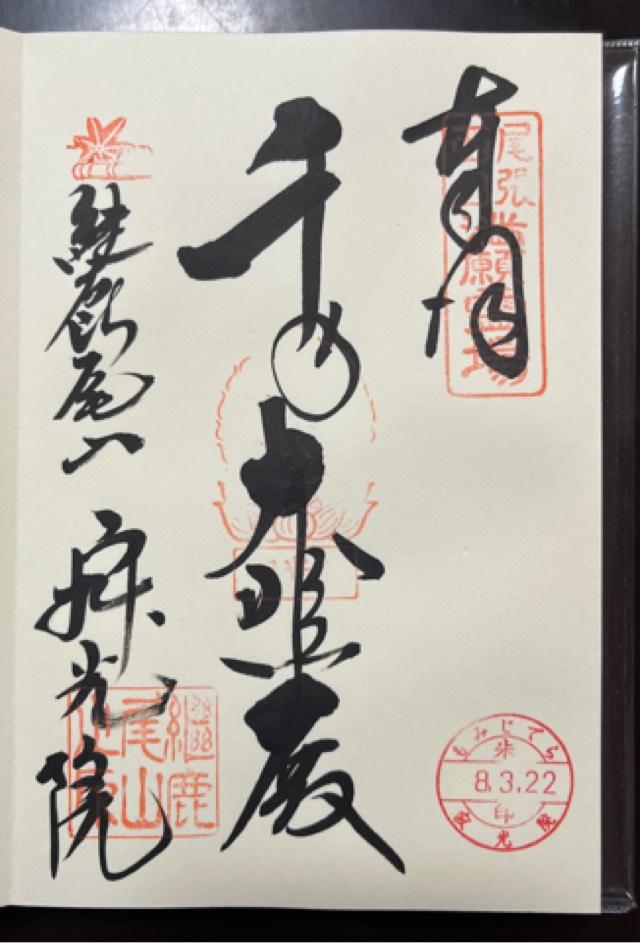 奉拝
尾張
願霊場
千手大悲殿
継鹿尾山 寂光院
繼鹿
尾山
もみじでら
8.3.22
印
寂光院